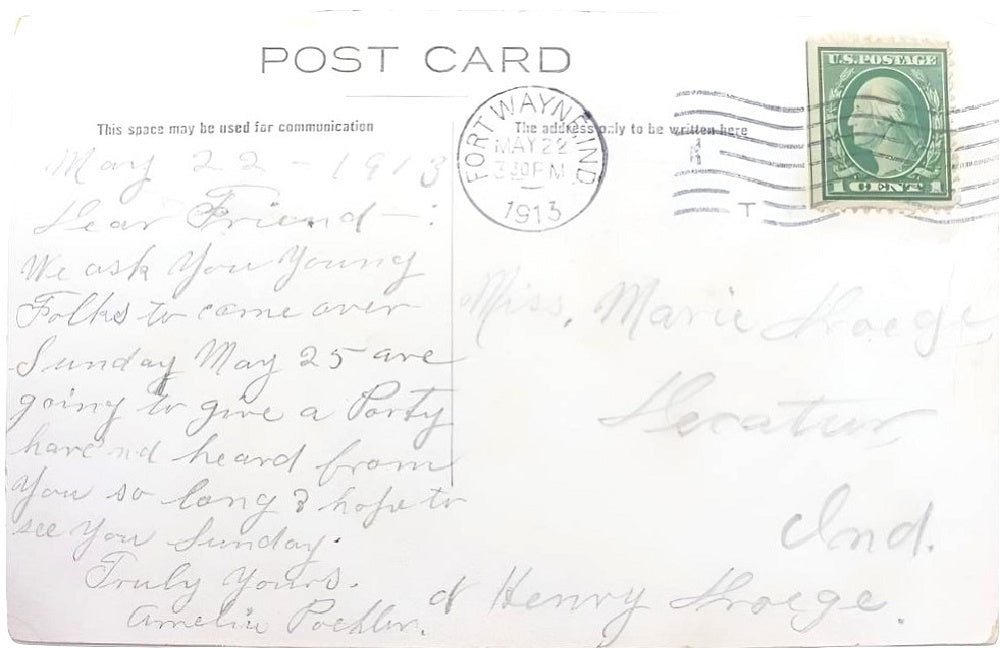 POST CARD
This space may be used for communication
The address only to be written here
FORT WAYNE, IND.
MAY 22
3 30 PM
1913
T
U.S. POSTAGE
1 CENT 1
May 22 - 1913
Dear Friend - :
We ask You Young
Folks to come over
Sunday May 25 are
going to give a Party
have nd heard from
You so long & hope to
see You Sunday.
Truly Yours.
Amelia Poehler.
Miss. Marie Kroege
Decatur
Ind.
% Henry Kroege.